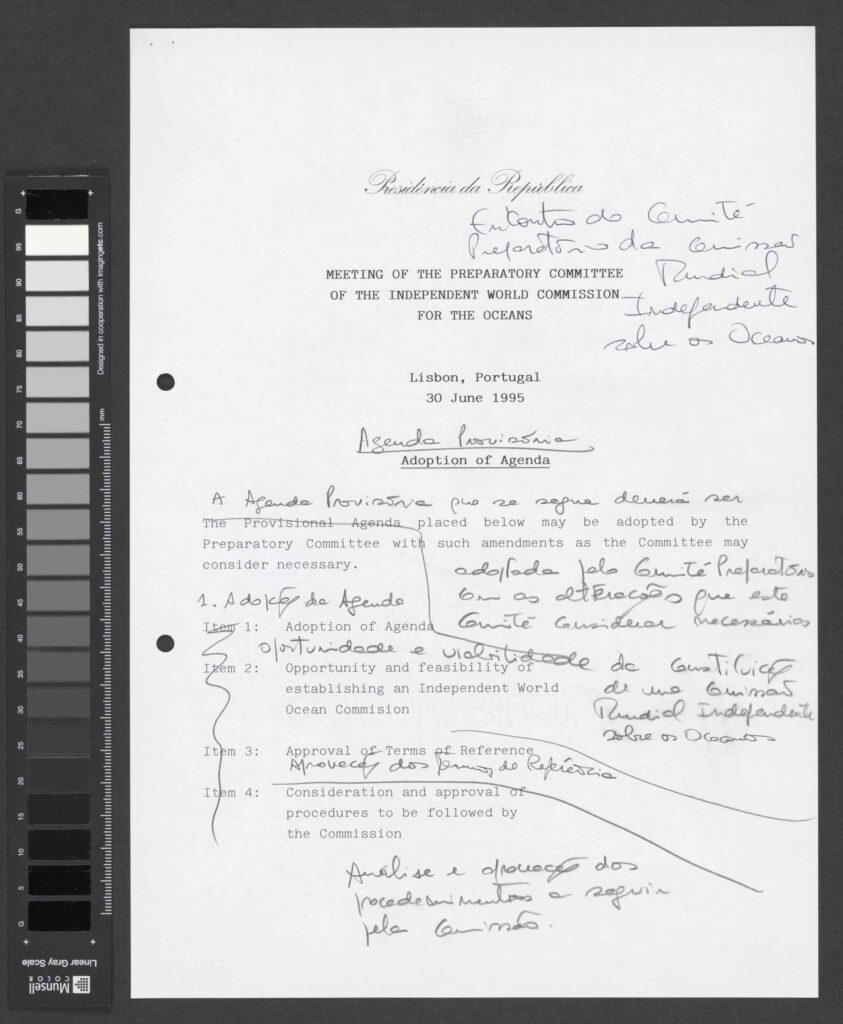 Presidência da República
Encontro do Comité
Preparatório da Comissão
Mundial
Independente
sobre os Oceanos
MEETING OF THE PREPARATORY COMMITTEE
OF THE INDEPENDENT WORLD COMMISSION
FOR THE OCEANS
Lisbon, Portugal
30 June 1995
Agenda Provisória
Adoption of Agenda
A Agenda Provisória que se segue deverá ser
The Provisional Agenda placed below may be adopted by the
Preparatory Committee with such amendments as the Committee may
consider necessary.
adoptada pelo Comité Preparatório
com as alterações que este
Comité considerar necessárias
1. Adopção da Agenda
Item 1: Adoption of Agenda
oportunidade e viabilidade da Constituição
de uma Comissão
Mundial Independente
sobre os Oceanos
Item 2: Opportunity and feasibility of
establishing an Independent World
Ocean Commision
Item 3: Approval of Terms of Reference
Aprovação dos Termos de Referência
Item 4: Consideration and approval of
procedures to be followed by
the Commission
Análise e aprovação dos
procedimentos a seguir
pela Comissão.
Designed in cooperation with imagingetc.com
mm
95
90
85
80
75
70
65
60
55
50
45
40
35
30
25
20
15
10
5
Munsell
COLOR
Linear Gray Scale